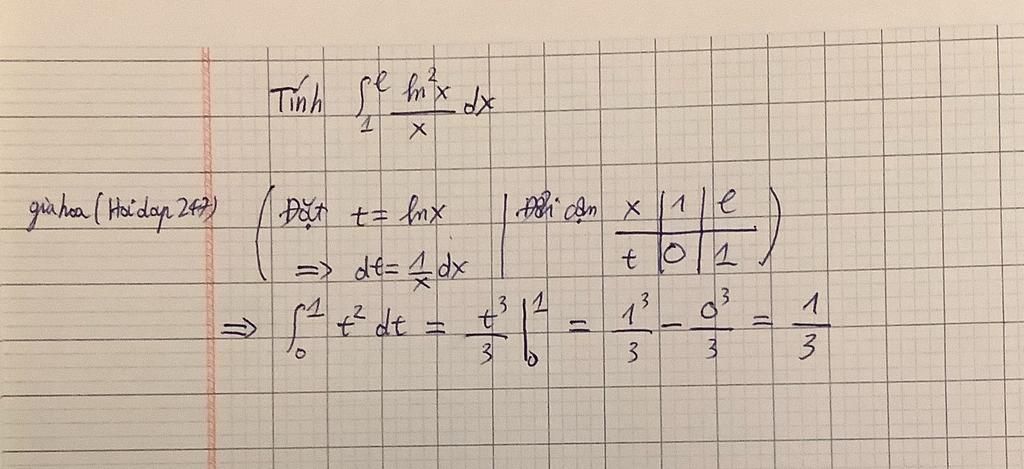 Tính ∫₁ᵉ ln²x/x dx
giahoa (Hoidap 247) ( Đặt t = lnx | Đổi cận x | 1 | e
⇒ dt = 1/x dx | t | 0 | 1 )
⇒ ∫₀¹ t² dt = t³/3 |₀¹ = 1³/3 − 0³/3 = 1/3